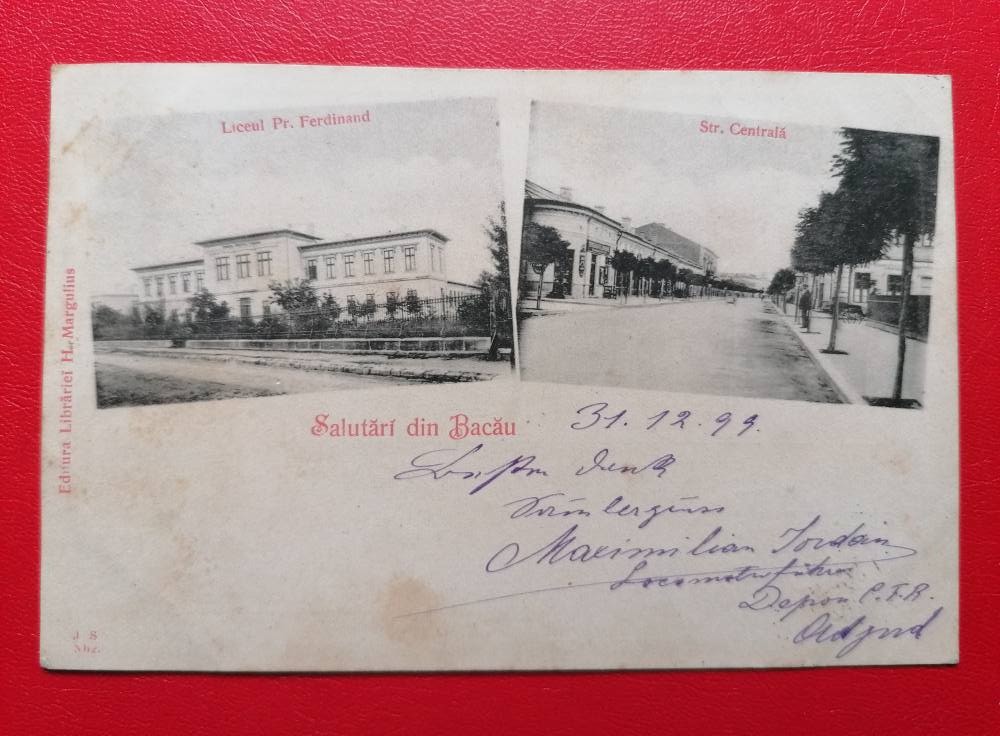 Liceul Pr. Ferdinand
Str. Centrală
Editura Librăriei H. Margulius
Salutărĭ din Bacău
31.12.99.
Besten Dank
Maximilian Iordan
Locomotivführer
Depou C.F.R.
Adjud
J S